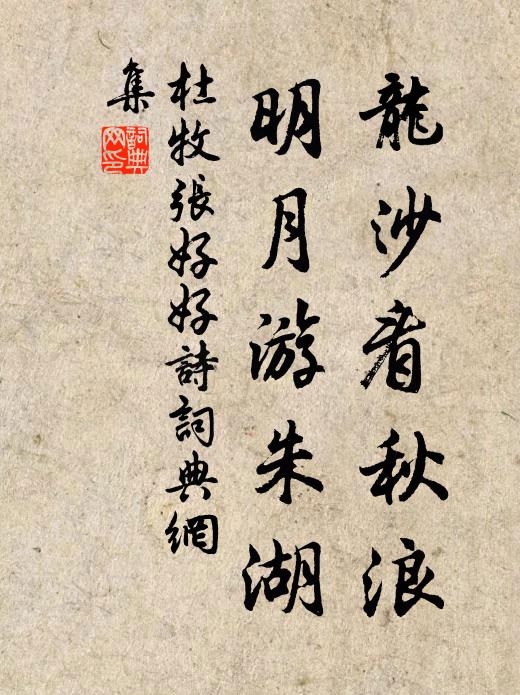 龍沙看秋浪
明月游朱湖
杜牧張好好詩詞典網
集
詞典網印